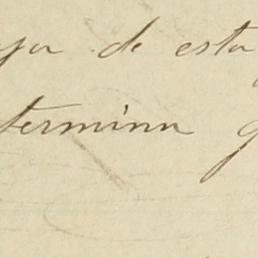 de esta
termina